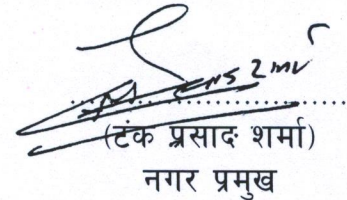 (टंक प्रसाद शर्मा)
नगर प्रमुख